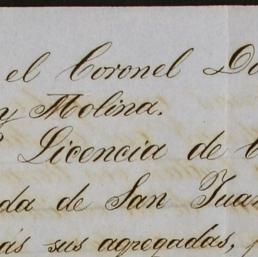 el Coronel D
y Molina.
Licencia de
da de San Juan
ás sus agregadas,